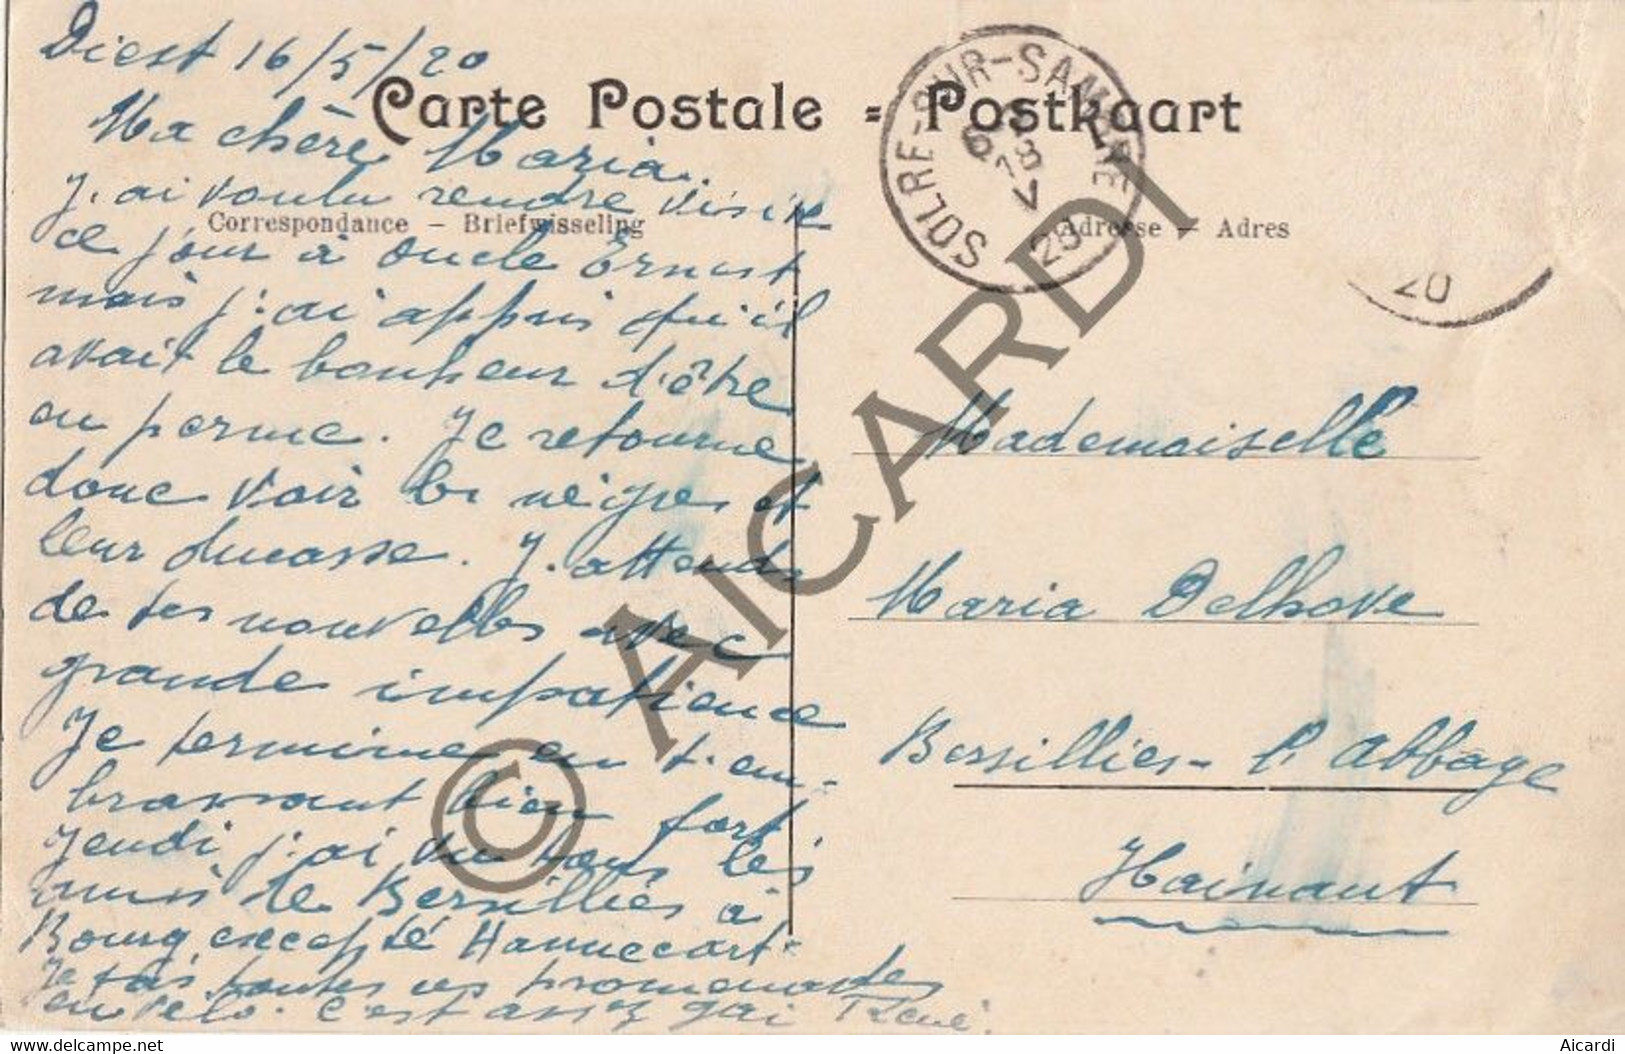 Diest 16/5/20
Carte Postale = Postkaart
SOLRE-SUR-SAMBRE
18
V
20
20
Ma chère Maria.
J'ai voulu rendre visite
Correspondance – Briefwisseling
Adresse – Adres
ce jour à oncle Ernest
mais j'ai appris qu'il
avait le bonheur d'être
en perme. Je retourne
donc voir les nègres et
leur ducasse. J'attends
de tes nouvelles avec
grande impatience
Je termine en t'em-
brassant bien fort.
Jeudi j'ai vu tous les
amis de Bersillies à
Bourg excepté Hannecart
Je fais toutes mes promenades
en vélo. C'est assez gai René.
Mademoiselle
Maria Delhove
Bersillies-l'Abbaye
Hainaut
© AICARDI
delcampe.net
Aicardi